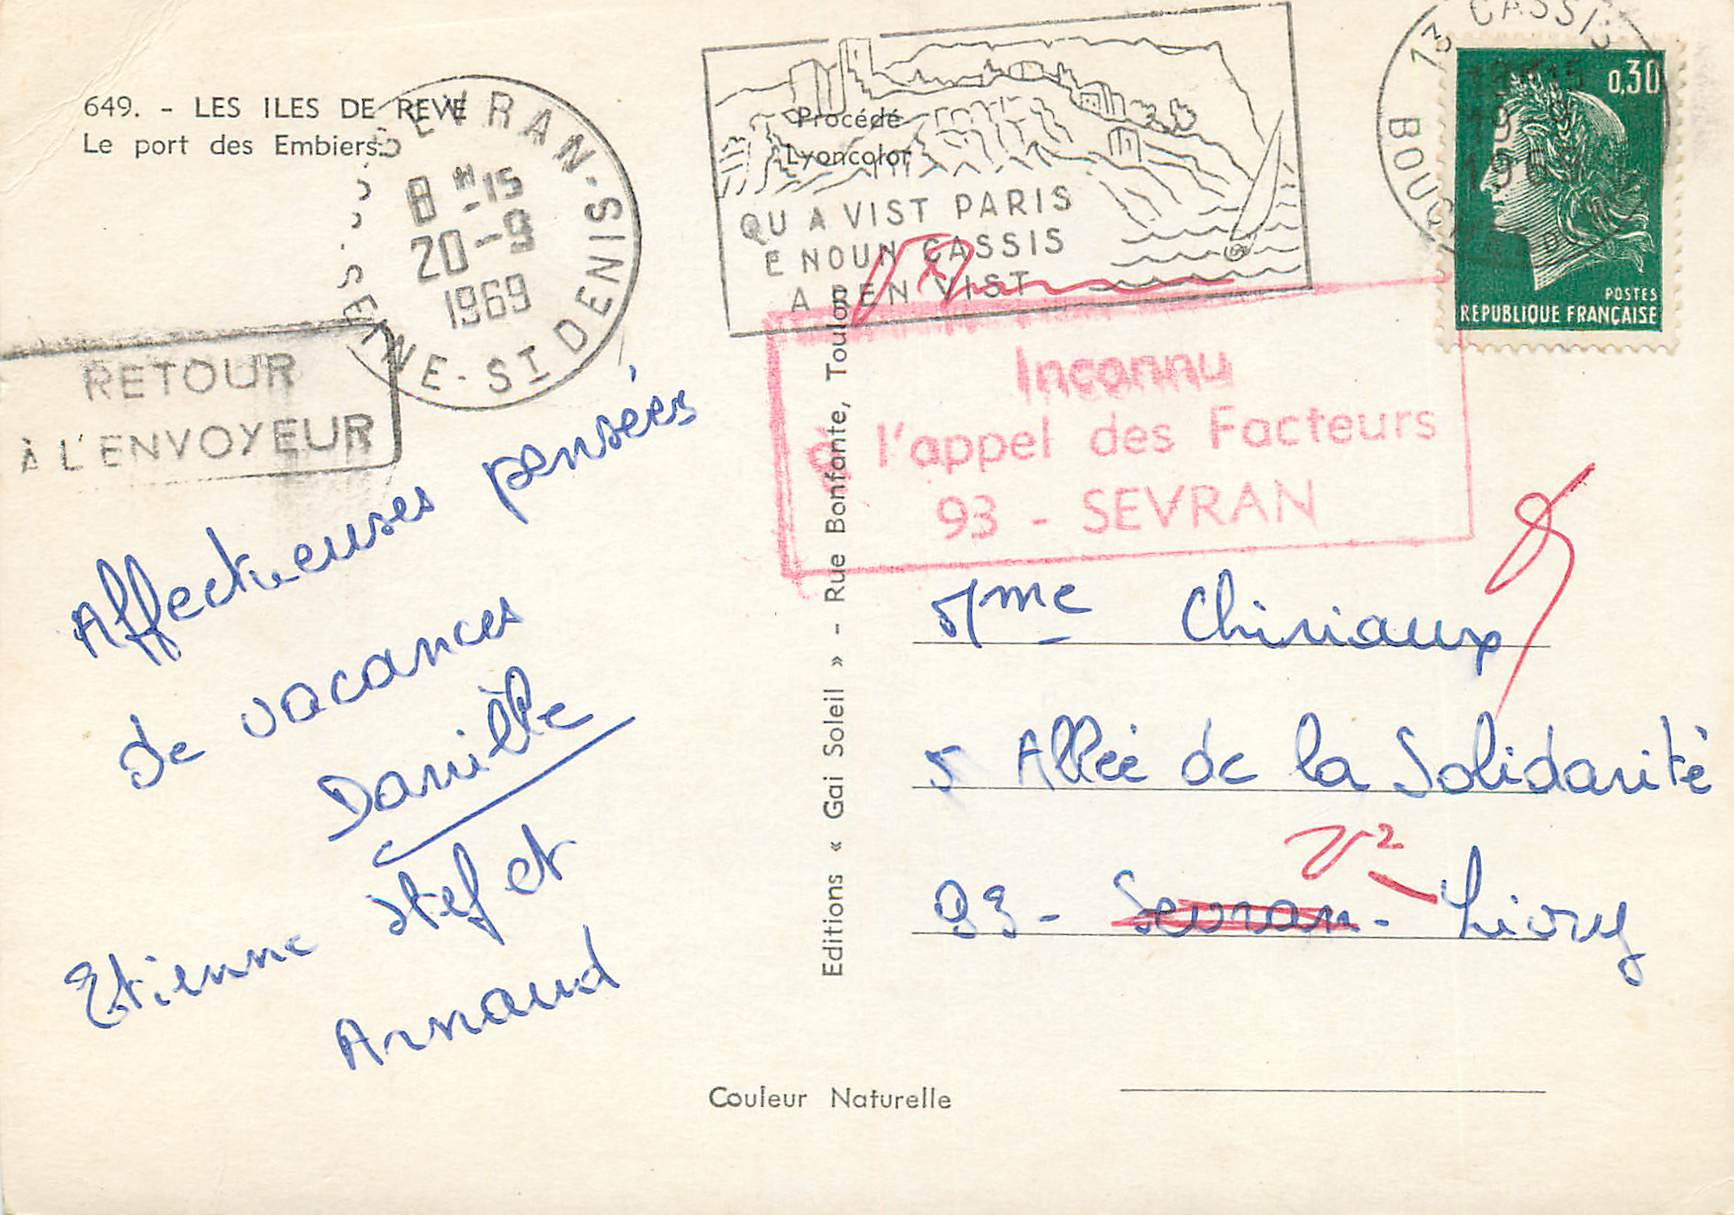 649. - LES ILES DE REVE
Le port des Embiers
SEVRAN - SEINE - ST DENIS
8 H -15
20 -9
1969
RETOUR
À L'ENVOYEUR
Procédé
Lyoncolor
QU A VIST PARIS
E NOUN CASSIS
A REN VIST
13 CASSIS
19 -9
196
BOUCHES
0,30
POSTES
REPUBLIQUE FRANÇAISE
Inconnu
à l'appel des Facteurs
93 - SEVRAN
Affectueuses pensées
de vacances
Danièle
Stef et
Etienne
Arnaud
Editions « Gai Soleil » - Rue Bonfante, Toulon
Mme Chiriaux
5 Allée de la Solidarité
V²
93 - Sevran - Livry
Couleur Naturelle